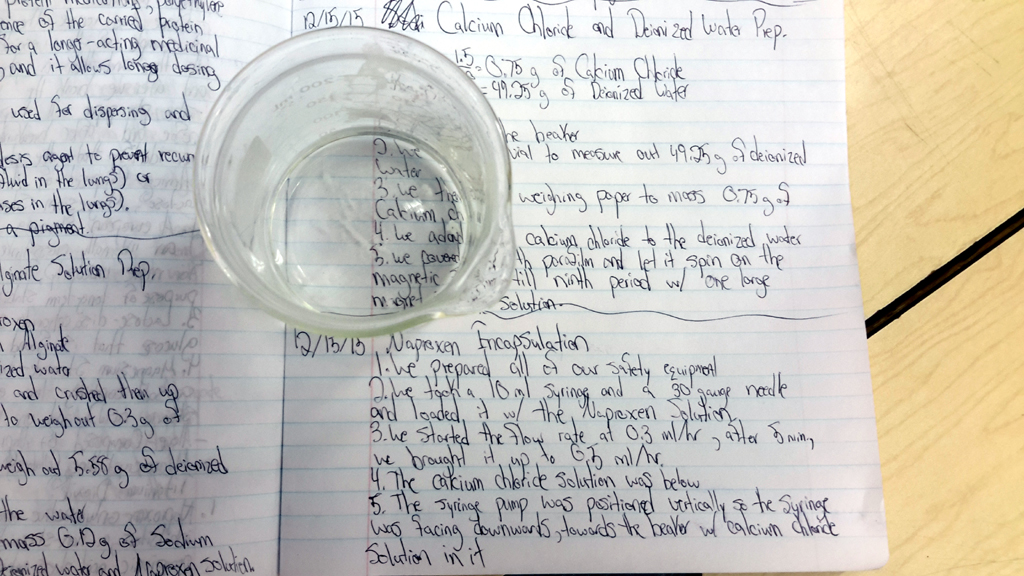 protein medication, polyethylene
ance of the correct protein
for a longer-acting medicinal
, and it allows long dosing
used for dispersing and
desis agent to prevent recurr
fluid in the lungs) or
ases in the lungs).
a pigment.
lginate Solution Prep.
roxen
n Alginate
ized water
and crushed them up
to weigh out 0.3g of
weigh out 5.58 g of deionized
the water
mass 0.12g of Sodium
deionized water and Naproxen solution
12/15/15 Calcium Chloride and Deionized Water Prep.
1.5
= 0.75 g of Calcium Chloride
= 49.25 g of Deionized Water
he beaker
2. We vial to measure out 49.25 g of deionized
water
3. We the weighing paper to mass 0.75 g of
Calcium, c
4. We added calcium chloride to the deionized water
5. We covered parafilm and let it spin on the
magnetic till ninth period w/ one large
Solution.
12/15/15 Naproxen Encapsulation
1. We prepared all of our safety equipment
2. We took a 10 ml syringe and a 30 gauge needle
and loaded it w/ the Naproxen Solution
3. We started the flow rate at 0.3 ml/hr, after 5 min,
we brought it up to 0.5 ml/hr.
4. The calcium chloride solution was below
5. The syringe pump was positioned vertically so the syringe
was facing downwards, towards the beaker w/ calcium chloride
solution in it